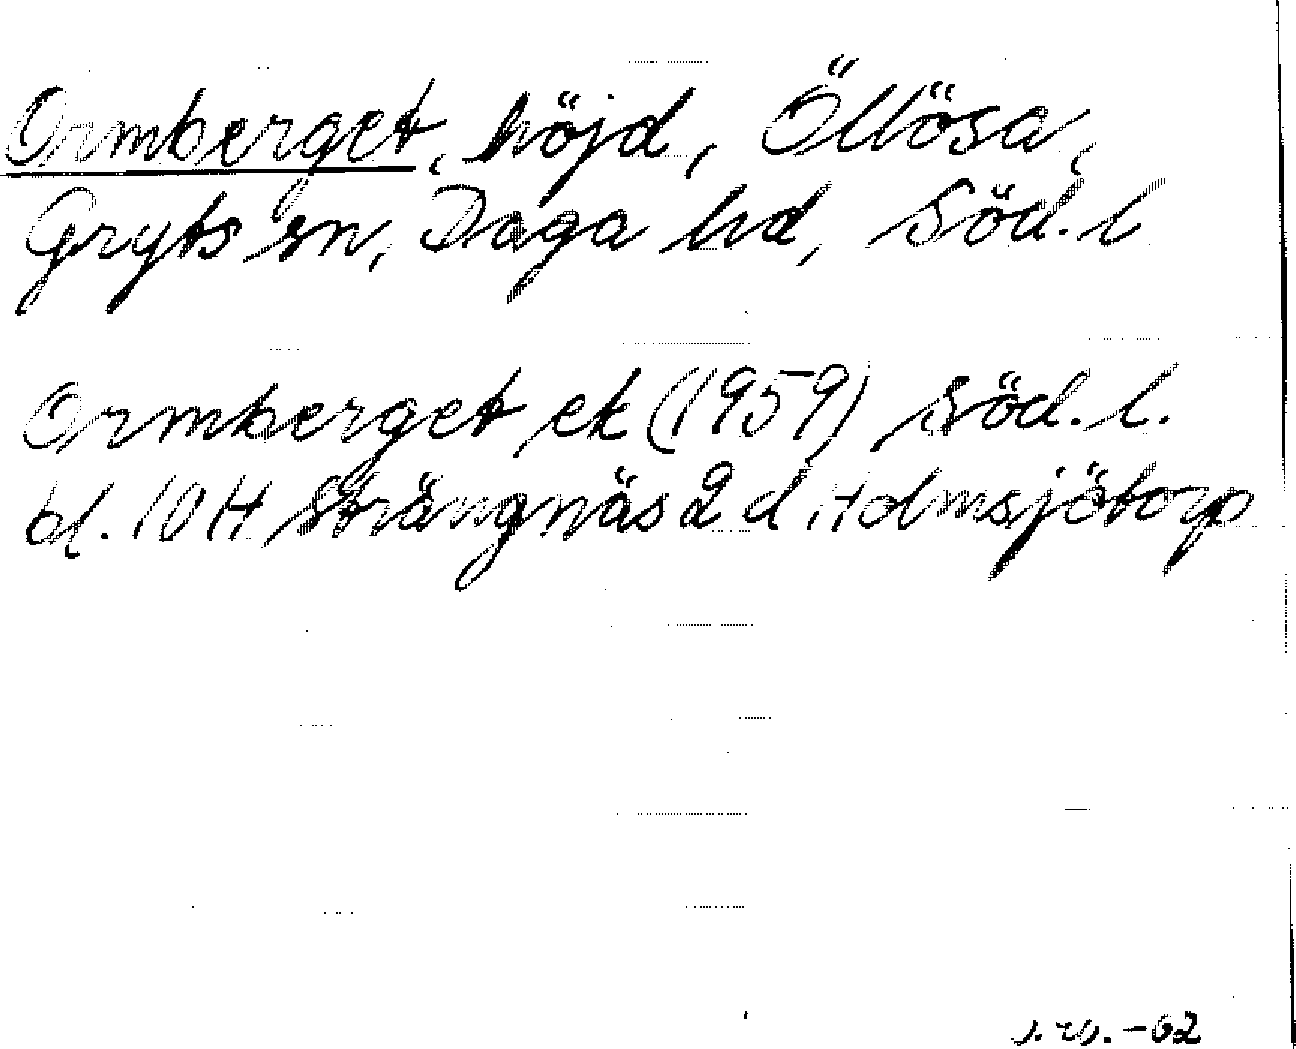 Ormberget, höjd, Öllösa,
Gryts sn, Daga hd, Söd. l
Ormberget ek (1959) Söd. l.
bl. 10 H Strängnäs 2 d Holmsjötorp
-62